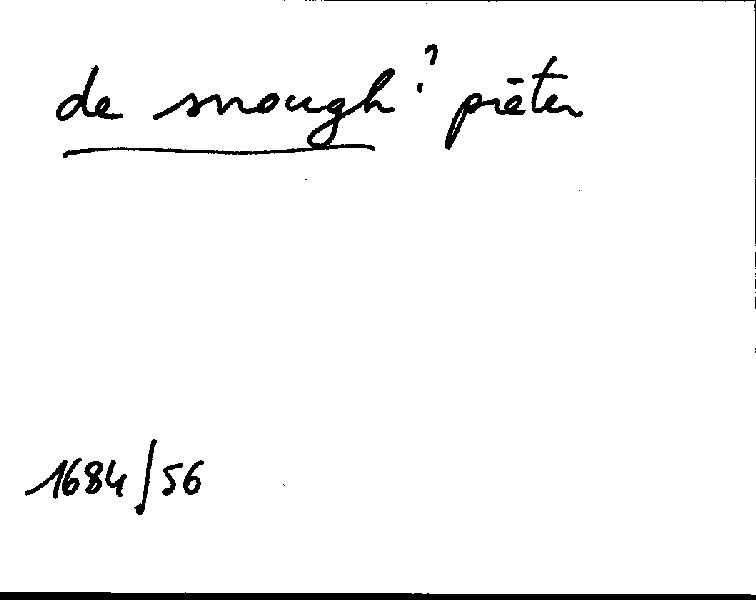 de snough? pieter
1684/56